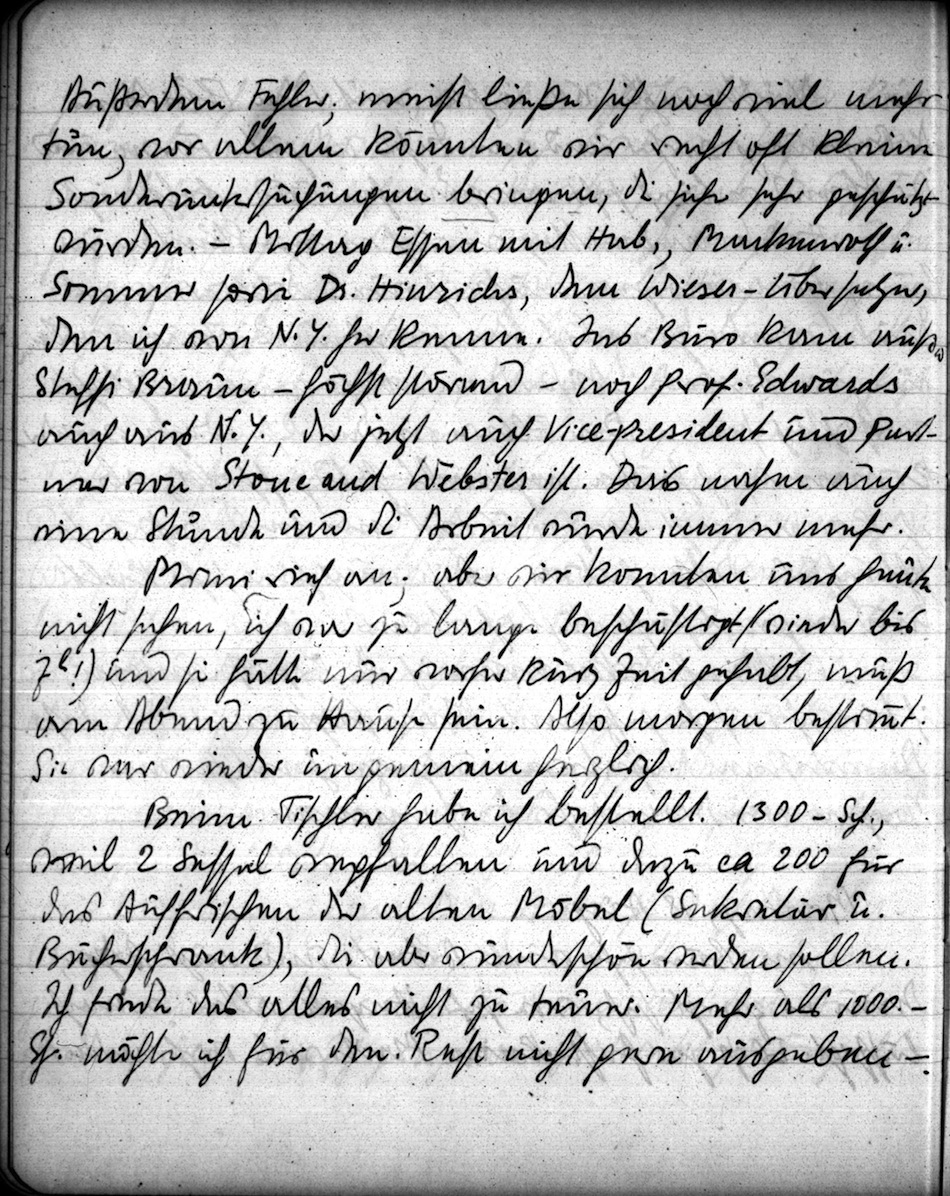 Außerdem Fehler; meist ließe sich noch viel mehr
tun, vor allem könnten wir recht oft kleine
Sonderuntersuchungen bringen, die sicher sehr geschätzt
würden. – Mittag Essen mit Hab., Markenwolf u.
Sommer sowie Dr. Hinrichs, dem Wieser-Übersetzer,
den ich von N.Y. her kenne. Ins Büro kam außer
Steffi Braun – höchst störend – noch Prof. Edwards
auch aus N.Y., der jetzt auch Vice-president und Part-
ner von Stone and Webster ist. Das nahm auch
eine Stunde und die Arbeit wurde immer mehr.
Mimi rief an; aber wir konnten uns heute
nicht sehen, ich war zu lange beschäftigt (wieder bis
7h!) und sie hätte nur vorher kurz Zeit gehabt, muß
am Abend zu Hause sein. Also morgen bestimmt.
Sie war wieder ungemein herzlich.
Beim Tischler habe ich bestellt. 1300 – Sch.,
weil 2 Sessel wegfallen und dazu ca 200 für
das Auffrischen der alten Möbel (Sekretär u.
Bücherschrank), die aber wunderschön werden sollen.
Ich finde das alles nicht zu teuer. Mehr als 1000.–
Sch. möchte ich für den Rest nicht gern ausgeben –